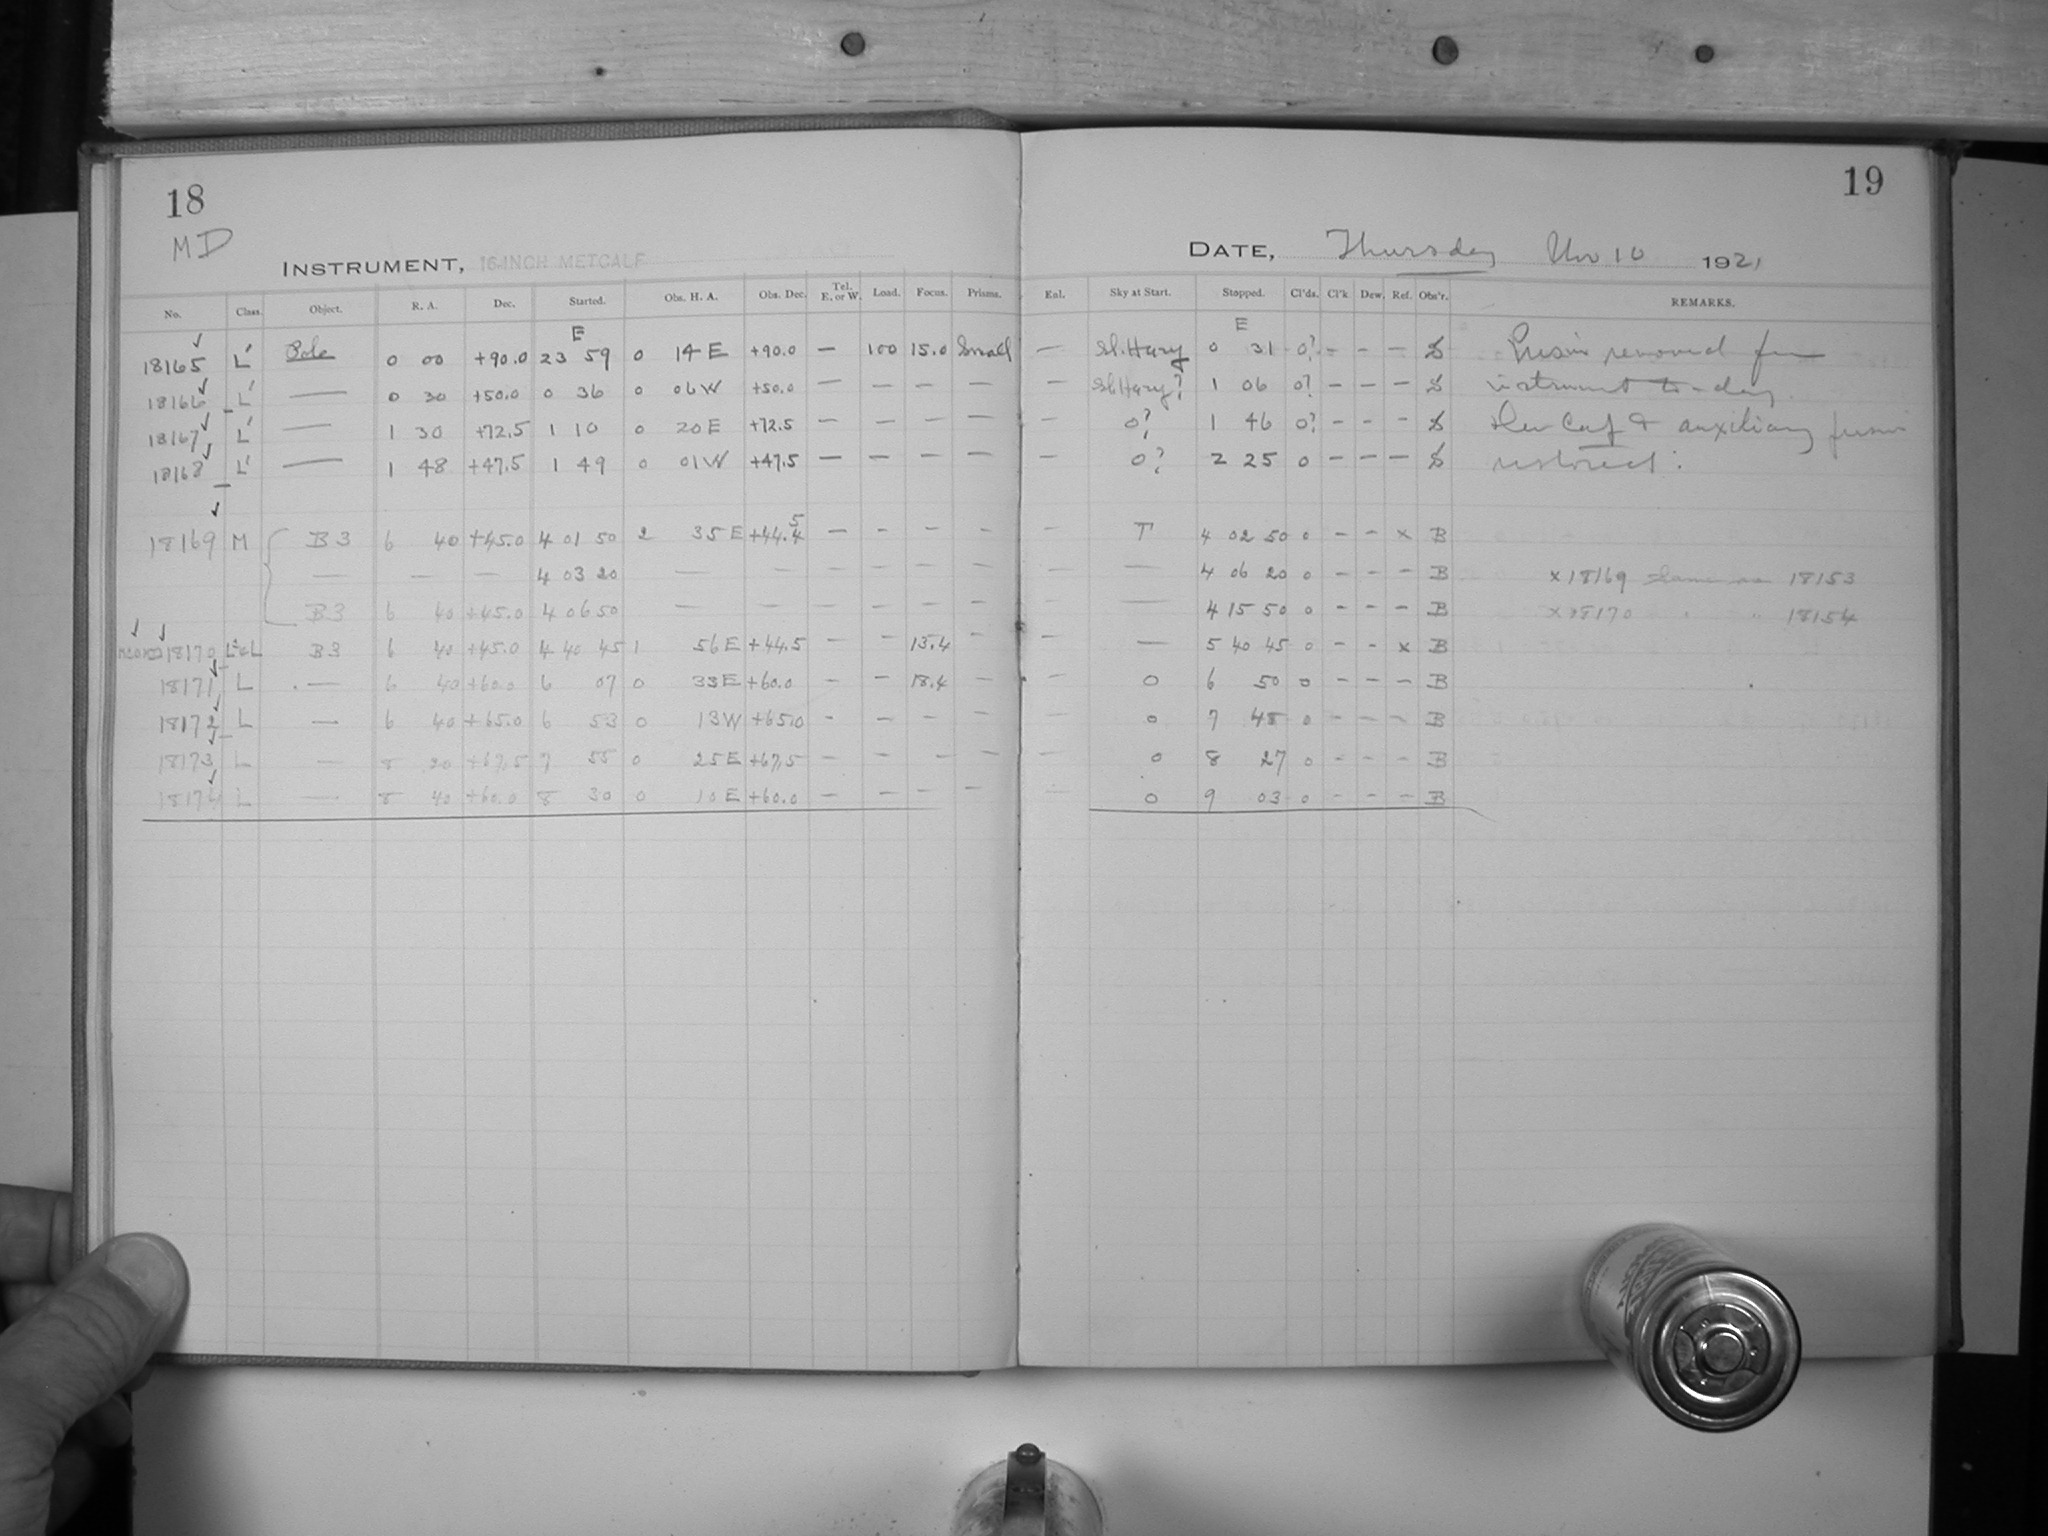 18
19
MD
INSTRUMENT, 16-INCH METCALF
DATE, Thursday Nov 10 1921
No. Class. Object. R. A. Dec. Started. Obs. H. A. Obs. Dec. Tel. E. or W. Load. Focus. Prisms. Enl. Sky at Start. Stopped. Cl'ds. Cl'k. Dew. Ref. Obs'r. REMARKS.
E E
18165 L' Pole 0 00 +90.0 23 59 0 14 E +90.0 — 100 15.0 Small — Sl. Hazy 0 31 0? - - - S Prism removed from
18166 L' — 0 30 +50.0 0 36 0 06 W +50.0 — — — — — Sl Hazy? 1 06 0? - - - S instrument to-day.
18167 L' — 1 30 +72.5 1 10 0 20 E +72.5 — — — — — 0? 1 46 0? - - - S & auxiliary prism
18168 L' — 1 48 +47.5 1 49 0 01 W +47.5 — — — — — 0? 2 25 0 - - - S restored.
18169 M B3 6 40 +45.0 4 01 50 2 35 E +44.5 — — — — — T 4 02 50 0 - - x B
— — — 4 03 20 — — — — — — — — 4 06 20 0 - - - B x 18169 same as 18153
B3 6 40 +45.0 4 06 50 — — — — — — — — 4 15 50 0 - - - B x 18170 " " 18154
18170 B3 6 40 +45.0 4 40 45 1 56 E +44.5 — — 13.4 — — — 5 40 45 0 - - x B
18171 L — 6 40 +60.0 6 07 0 33 E +60.0 — — 18.4 — — 0 6 50 0 - - - B
18172 L — 6 40 +65.0 6 53 0 13 W +65.0 - — — — — 0 7 48 0 - - - B
18173 L — 8 20 +67.5 7 55 0 25 E +67.5 — — — — — 0 8 27 0 - - - B
18174 L — 8 40 +60.0 8 30 0 10 E +60.0 — — — — — 0 9 03 0 - - - B